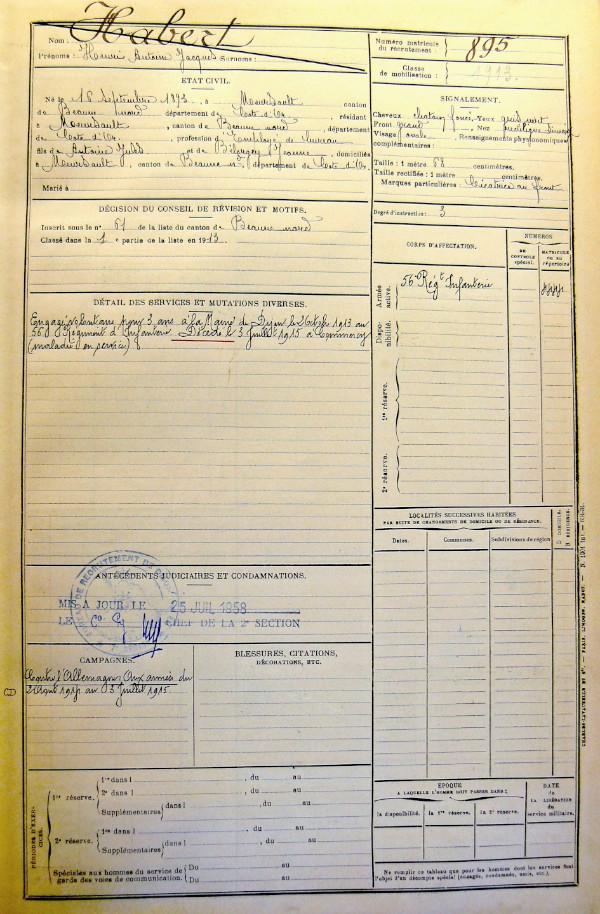 Nom : Habert
Prénoms : Henri Antoine Jacques Surnoms :
Numéro matricule du recrutement : 895
Classe de mobilisation : 1913.
ETAT CIVIL.
Né le 18 Septembre 1893, à Meursault canton
de Beaune nord département de Côte d'Or résidant
à Meursault, canton de Beaune nord, département
de Côte d'Or, profession de Employé de bureau
fils de Antoine Jules et de Jeanne, domiciliés
à Meursault, canton de Beaune nd, département de Côte d'Or
Marié à
SIGNALEMENT.
Cheveux châtain foncé Yeux gris
Front grand, Nez rectiligne
Visage ovale, Renseignements physionomiques
complémentaires :
Taille : 1 mètre 68 centimètres.
Taille rectifiée : 1 mètre centimètres.
Marques particulières : Cicatrice au front
Degré d'instruction : 3
DÉCISION DU CONSEIL DE RÉVISION ET MOTIFS.
Inscrit sous le n° 61 de la liste du canton de Beaune nord
Classé dans la 1 e partie de la liste en 1913.
CORPS D'AFFECTATION.
NUMÉROS
DE CONTRÔLE spécial.
MATRICULE ou au répertoire
Armée active.
56e Régt Infanterie
Disponibilité.
1re réserve.
2e réserve.
DÉTAIL DES SERVICES ET MUTATIONS DIVERSES.
Engagé volontaire pour 3 ans à la Mairie de Dijon le 2 Octobre 1913 au
56e Régiment d'Infanterie Décédé le 3 Juillet 1915 à Commercy
(maladie en service)
LOCALITÉS SUCCESSIVES HABITÉES
PAR SUITE DE CHANGEMENTS DE DOMICILE OU DE RÉSIDENCE.
Dates.
Communes.
Subdivisions de région
D DOMICILE.
R RÉSIDENCE.
ANTÉCÉDENTS JUDICIAIRES ET CONDAMNATIONS.
BUREAU DE RECRUTEMENT DE
MIS A JOUR LE 25 JUIL 1958
LE CHEF DE LA 2e SECTION
CAMPAGNES.
Contre l'Allemagne Aux armées du
2 Août 1914 au 3 Juillet 1915.
BLESSURES, CITATIONS,
DÉCORATIONS, ETC.
PÉRIODES D'EXERCICES.
1re réserve.
1re dans l , du au
2e dans l , du au
Supplémentaires dans l , du au
2e réserve.
1re dans l , du au
Supplémentaires dans l , du au
Spéciales aux hommes du service de garde des voies de communication.
Du au
Du au
EPOQUE
A LAQUELLE L'HOMME DOIT PASSER DANS :
la disponibilité.
la 1re réserve.
la 2e réserve.
DATE
de
LA LIBÉRATION
du
service militaire.
Ne remplir ce tableau que pour les hommes dont les services font
l'objet d'un décompte spécial (engagés, condamnés, omis, etc.)